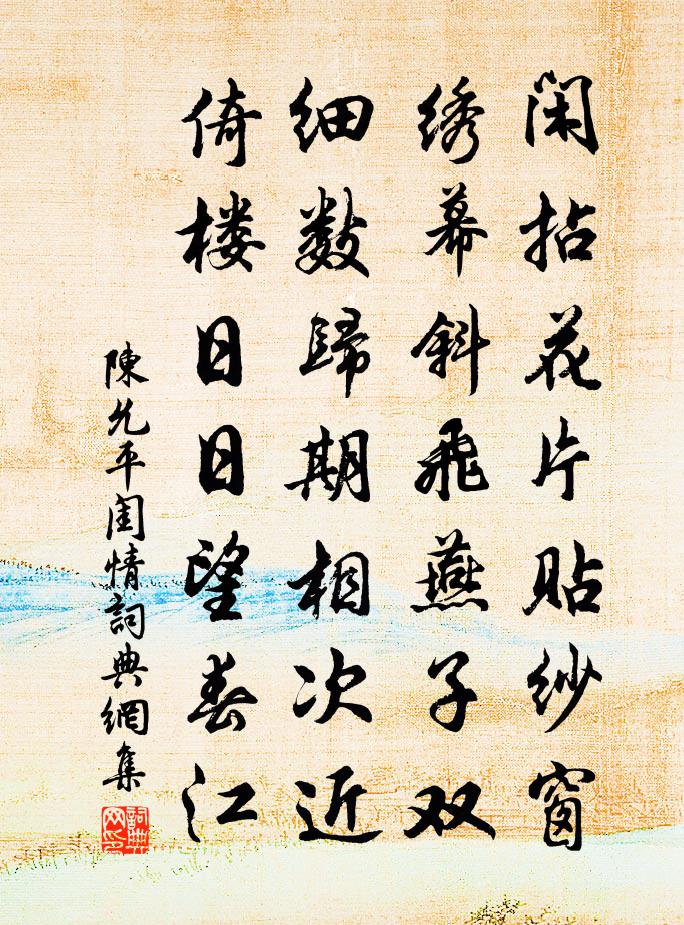 闲拈花片贴纱窗
绣幕斜飛燕子双
细数歸期相次近
倚楼日日望春江
陳允平闺情詞典網集
詞典网印